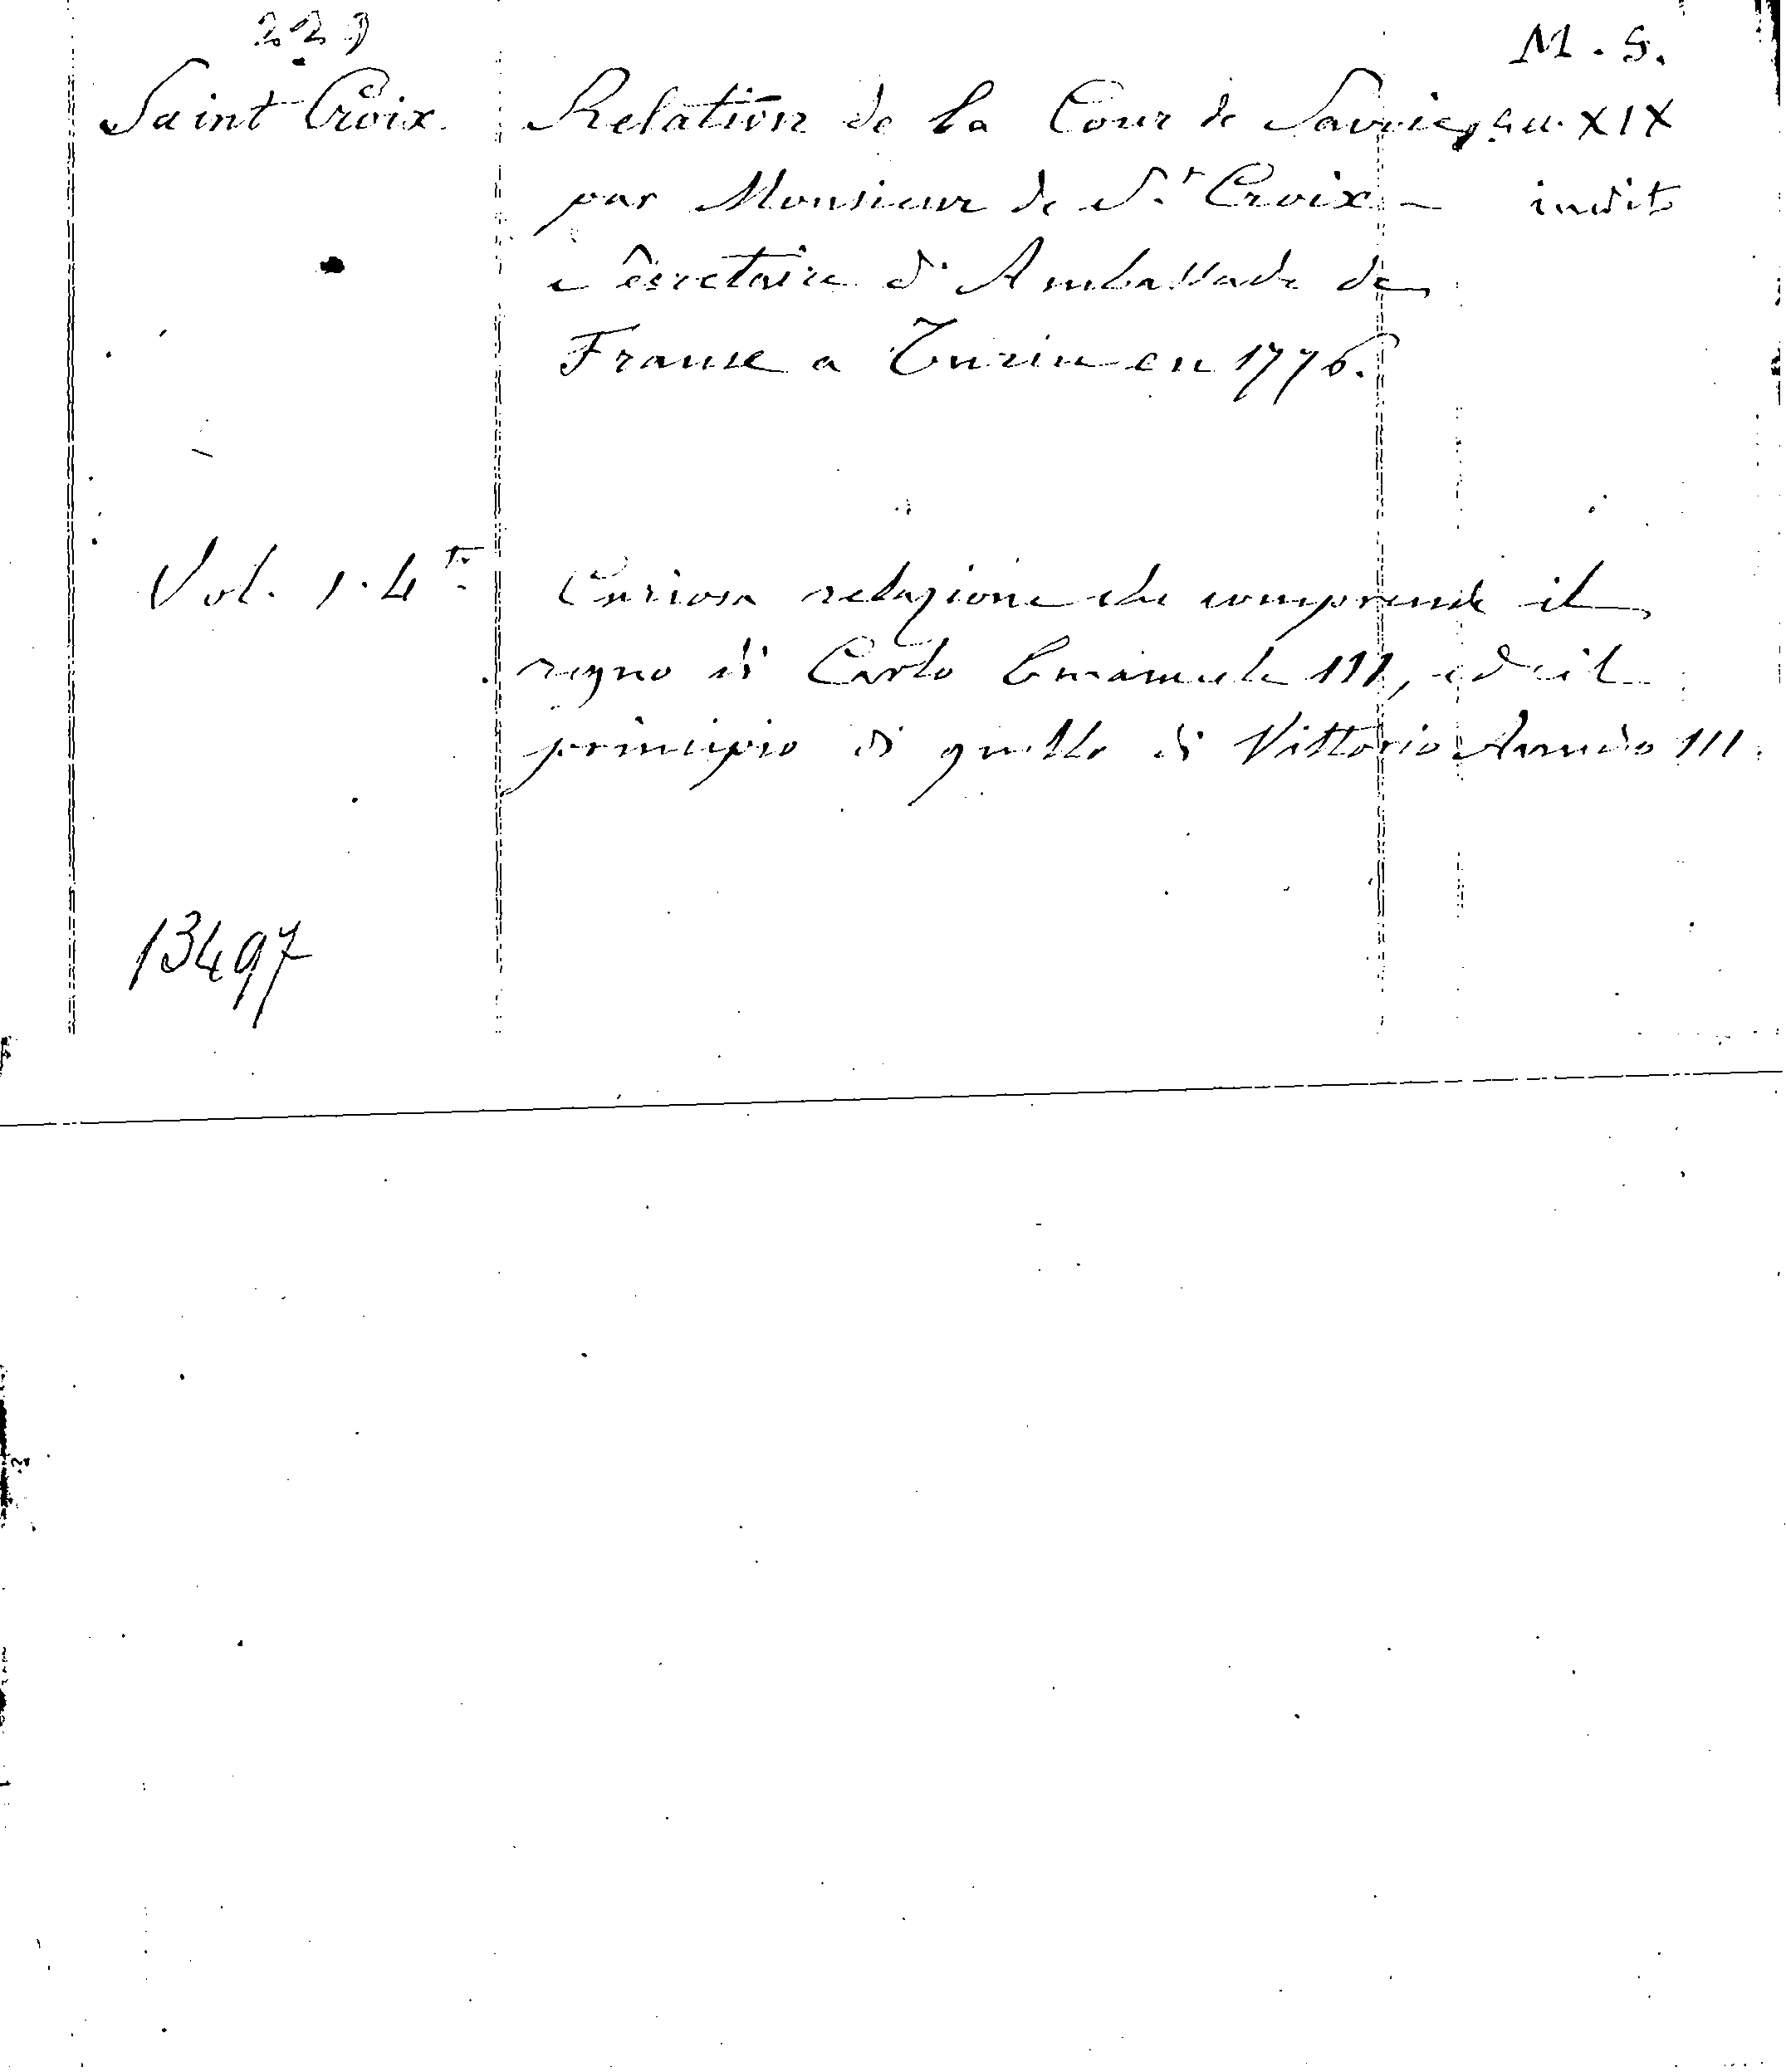 229
M. S.
Saint Croix. Relation de la Cour de Savoie, au XIX
par Monsieur de St Croix - inedito
secretaire d'Ambassade de
France a Turin en 1776.
Vol. 1. 4to Curiosa relazione che comprende il
regno di Carlo Emanuele III, ed il
principio di quello di Vittorio Amedeo III.
13497